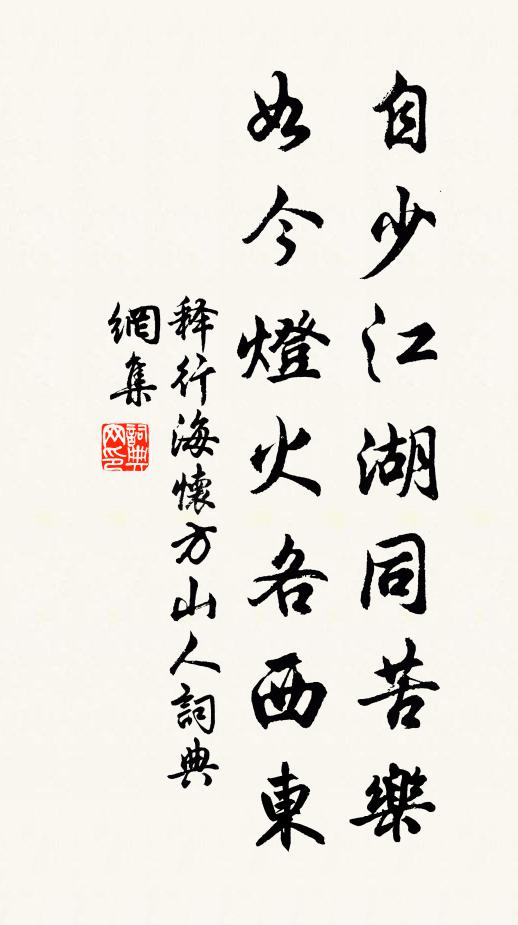 自少江湖同苦樂
如今燈火各西東
释行海懷方山人詞典
網集
詞典
网印